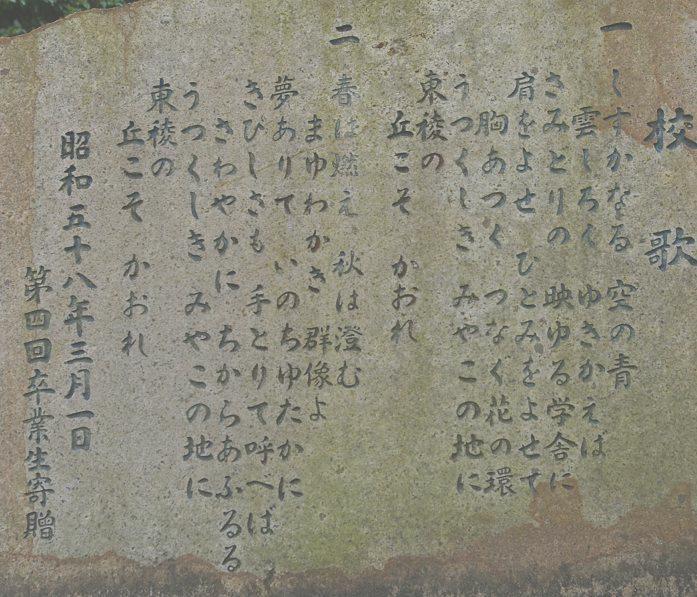 校歌
一 くすかなる 空の青
雲しろく ゆきかえば
さみとりの 映ゆる学舎に
肩をよせ ひとみをよせて
胸あつく つなぐ花の環
うつくしき みやこの地に
東稜の
丘こそ かおれ
二 春は燃え、秋は澄む
まゆわかき 群像よ
夢ありて いのちゆたかに
きびしさも 手とりて呼べば
さわやかに ちからあふるる
うつくしき みやこの地に
東稜の
丘こそ かおれ
昭和五十八年三月一日
第四回卒業生寄贈